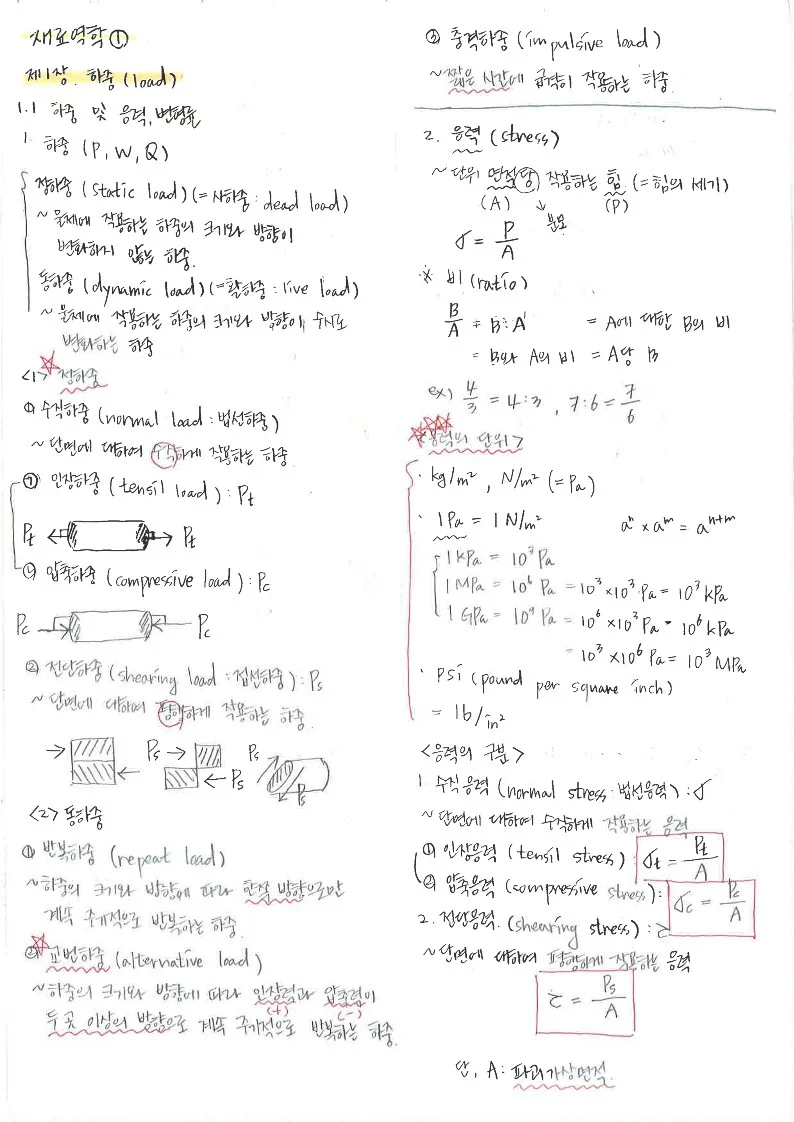 재료역학①
제1장. 하중 (load)
1.1 하중 및 응력, 변형률
1. 하중 (P, W, Q)
정하중 (static load) (= 사하중 : dead load)
~ 물체에 작용하는 하중의 크기와 방향이
변화하지 않는 하중.
동하중 (dynamic load) (= 활하중 : live load)
~ 물체에 작용하는 하중의 크기와 방향이 수시로
변화하는 하중
<1> 정하중
① 수직하중 (normal load : 법선하중)
~ 단면에 대하여 수직하게 작용하는 하중
㉠ 인장하중 (tensil load) : Pt
Pt Pt
㉡ 압축하중 (compressive load) : Pc
Pc Pc
② 전단하중 (shearing load : 접선하중) : Ps
~ 단면에 대하여 평행하게 작용하는 하중.
Ps Ps Ps Ps
<2> 동하중
① 반복하중 (repeat load)
~ 하중의 크기와 방향에 따라 한쪽 방향으로만
계속 주기적으로 반복하는 하중.
② 교번하중 (alternative load)
~ 하중의 크기와 방향에 따라 인장력과 압축력이
(+) (-)
두 곳 이상의 방향으로 계속 주기적으로 반복하는 하중.
③ 충격하중 (impulsive load)
~ 짧은 시간에 급격히 작용하는 하중.
2. 응력 (stress)
~ 단위 면적당 작용하는 힘 (= 힘의 세기)
(A) 분모 (P)
σ = P/A
※ 비 (ratio)
B/A = B : A = A에 대한 B의 비
= B와 A의 비 = A당 B
ex) 4/3 = 4:3 , 7:6 = 7/6
<응력의 단위>
· kg/m² , N/m² (= Pa)
· 1Pa = 1N/m² aⁿ × aᵐ = aⁿ⁺ᵐ
1kPa = 10³ Pa
1MPa = 10⁶ Pa = 10³ × 10³ Pa = 10³ kPa
1GPa = 10⁹ Pa = 10⁶ × 10³ Pa = 10⁶ kPa
= 10³ × 10⁶ Pa = 10³ MPa
· psi (pound per square inch)
= lb/in²
<응력의 구분>
1. 수직응력 (normal stress · 법선응력) : σ
~ 단면에 대하여 수직하게 작용하는 응력
① 인장응력 (tensil stress) : σt = Pt/A
② 압축응력 (compressive stress) : σc = Pc/A
2. 전단응력. (shearing stress) : τ
~ 단면에 대하여 평행하게 작용하는 응력
τ = Ps/A
단, A : 파괴가상면적.